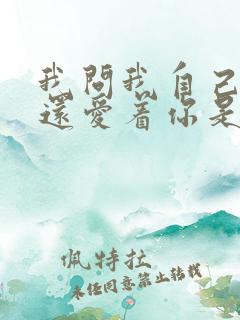 我問我自己
還愛着你是
佩特拉
未经同意禁止转载